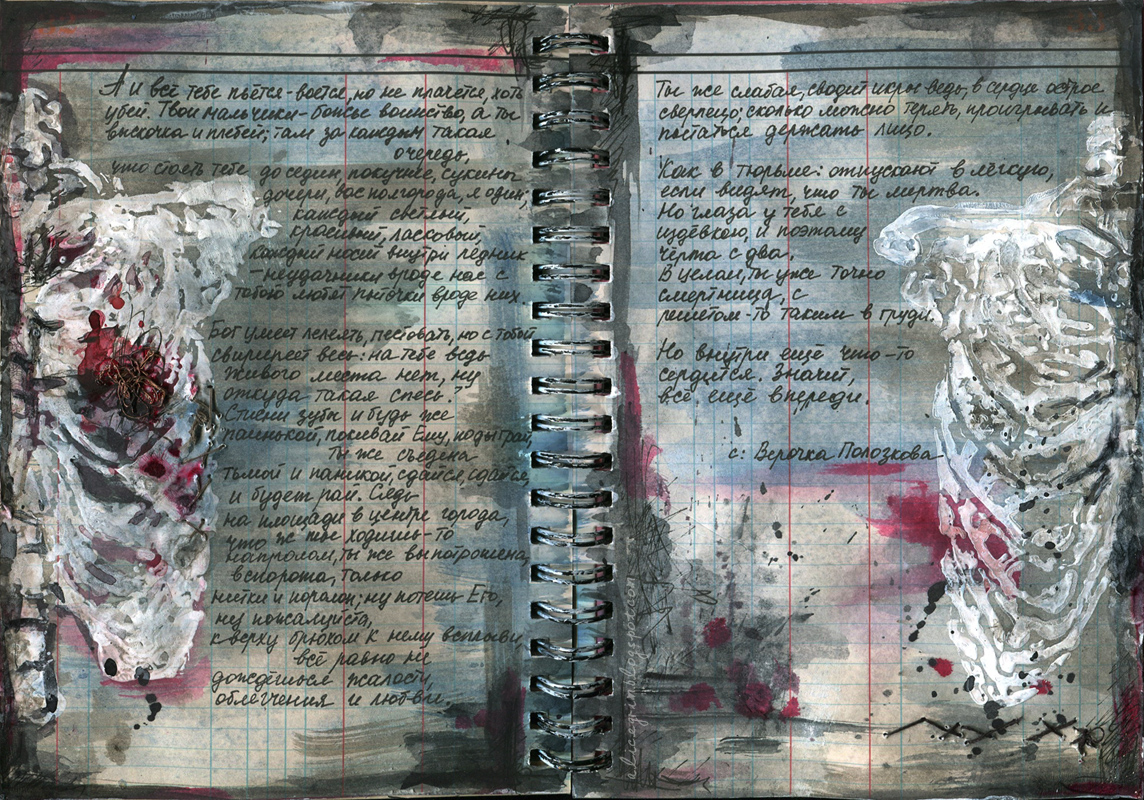 А и всё тебе пьётся-воется, но не плачется, хоть
убей. Твои мальчики-божье воинство, а ты
выскочка и плебей; там за каждым такая
очередь,
что стоять тебе до седин, покучнее, сукины
дочери, вас полгорода, я один;
каждый светлый,
красивый, ласковый,
каждый носит внутри ледник
-неудачники вроде нас с
тобой любят пыточки вроде них.
Бог умеет лелеять, пестовать, но с тобой
свирипеет весь: на тебе ведь
живого места нет, ну
откуда такая спесь?
Стисни зубы и будь же
паинькой, покивай Ему, подыграй,
ты же съедена
тьмой и паникой, сдайся, сдайся,
и будет рай. Сядь
на площади в центре города,
что ж ты ходишь-то
напролом, ты же выпотрошена,
вспорота, только
нитки и поролон; ну потешь Его,
ну пожалуйста,
кверху брюхом к нему всплыви,
всё равно не
дождёшься жалости,
облегчения и любви.
Ты же слабая, сводит икры ведь, в сердце острое
сверлецо; сколько можно терять, проигрывать и
пытаться держать лицо.
Как в тюрьме: отпускают в лёгкую,
если видят, что ты мертва.
Но глаза у тебя с
издёвкою, и поэтому
чёрта с два.
В целом, ты уже точно
смертница, с
решетом-то таким в груди.
Но внутри ещё что-то
сердится. Значит,
всё ещё впереди.
с: Верочка Полозкова